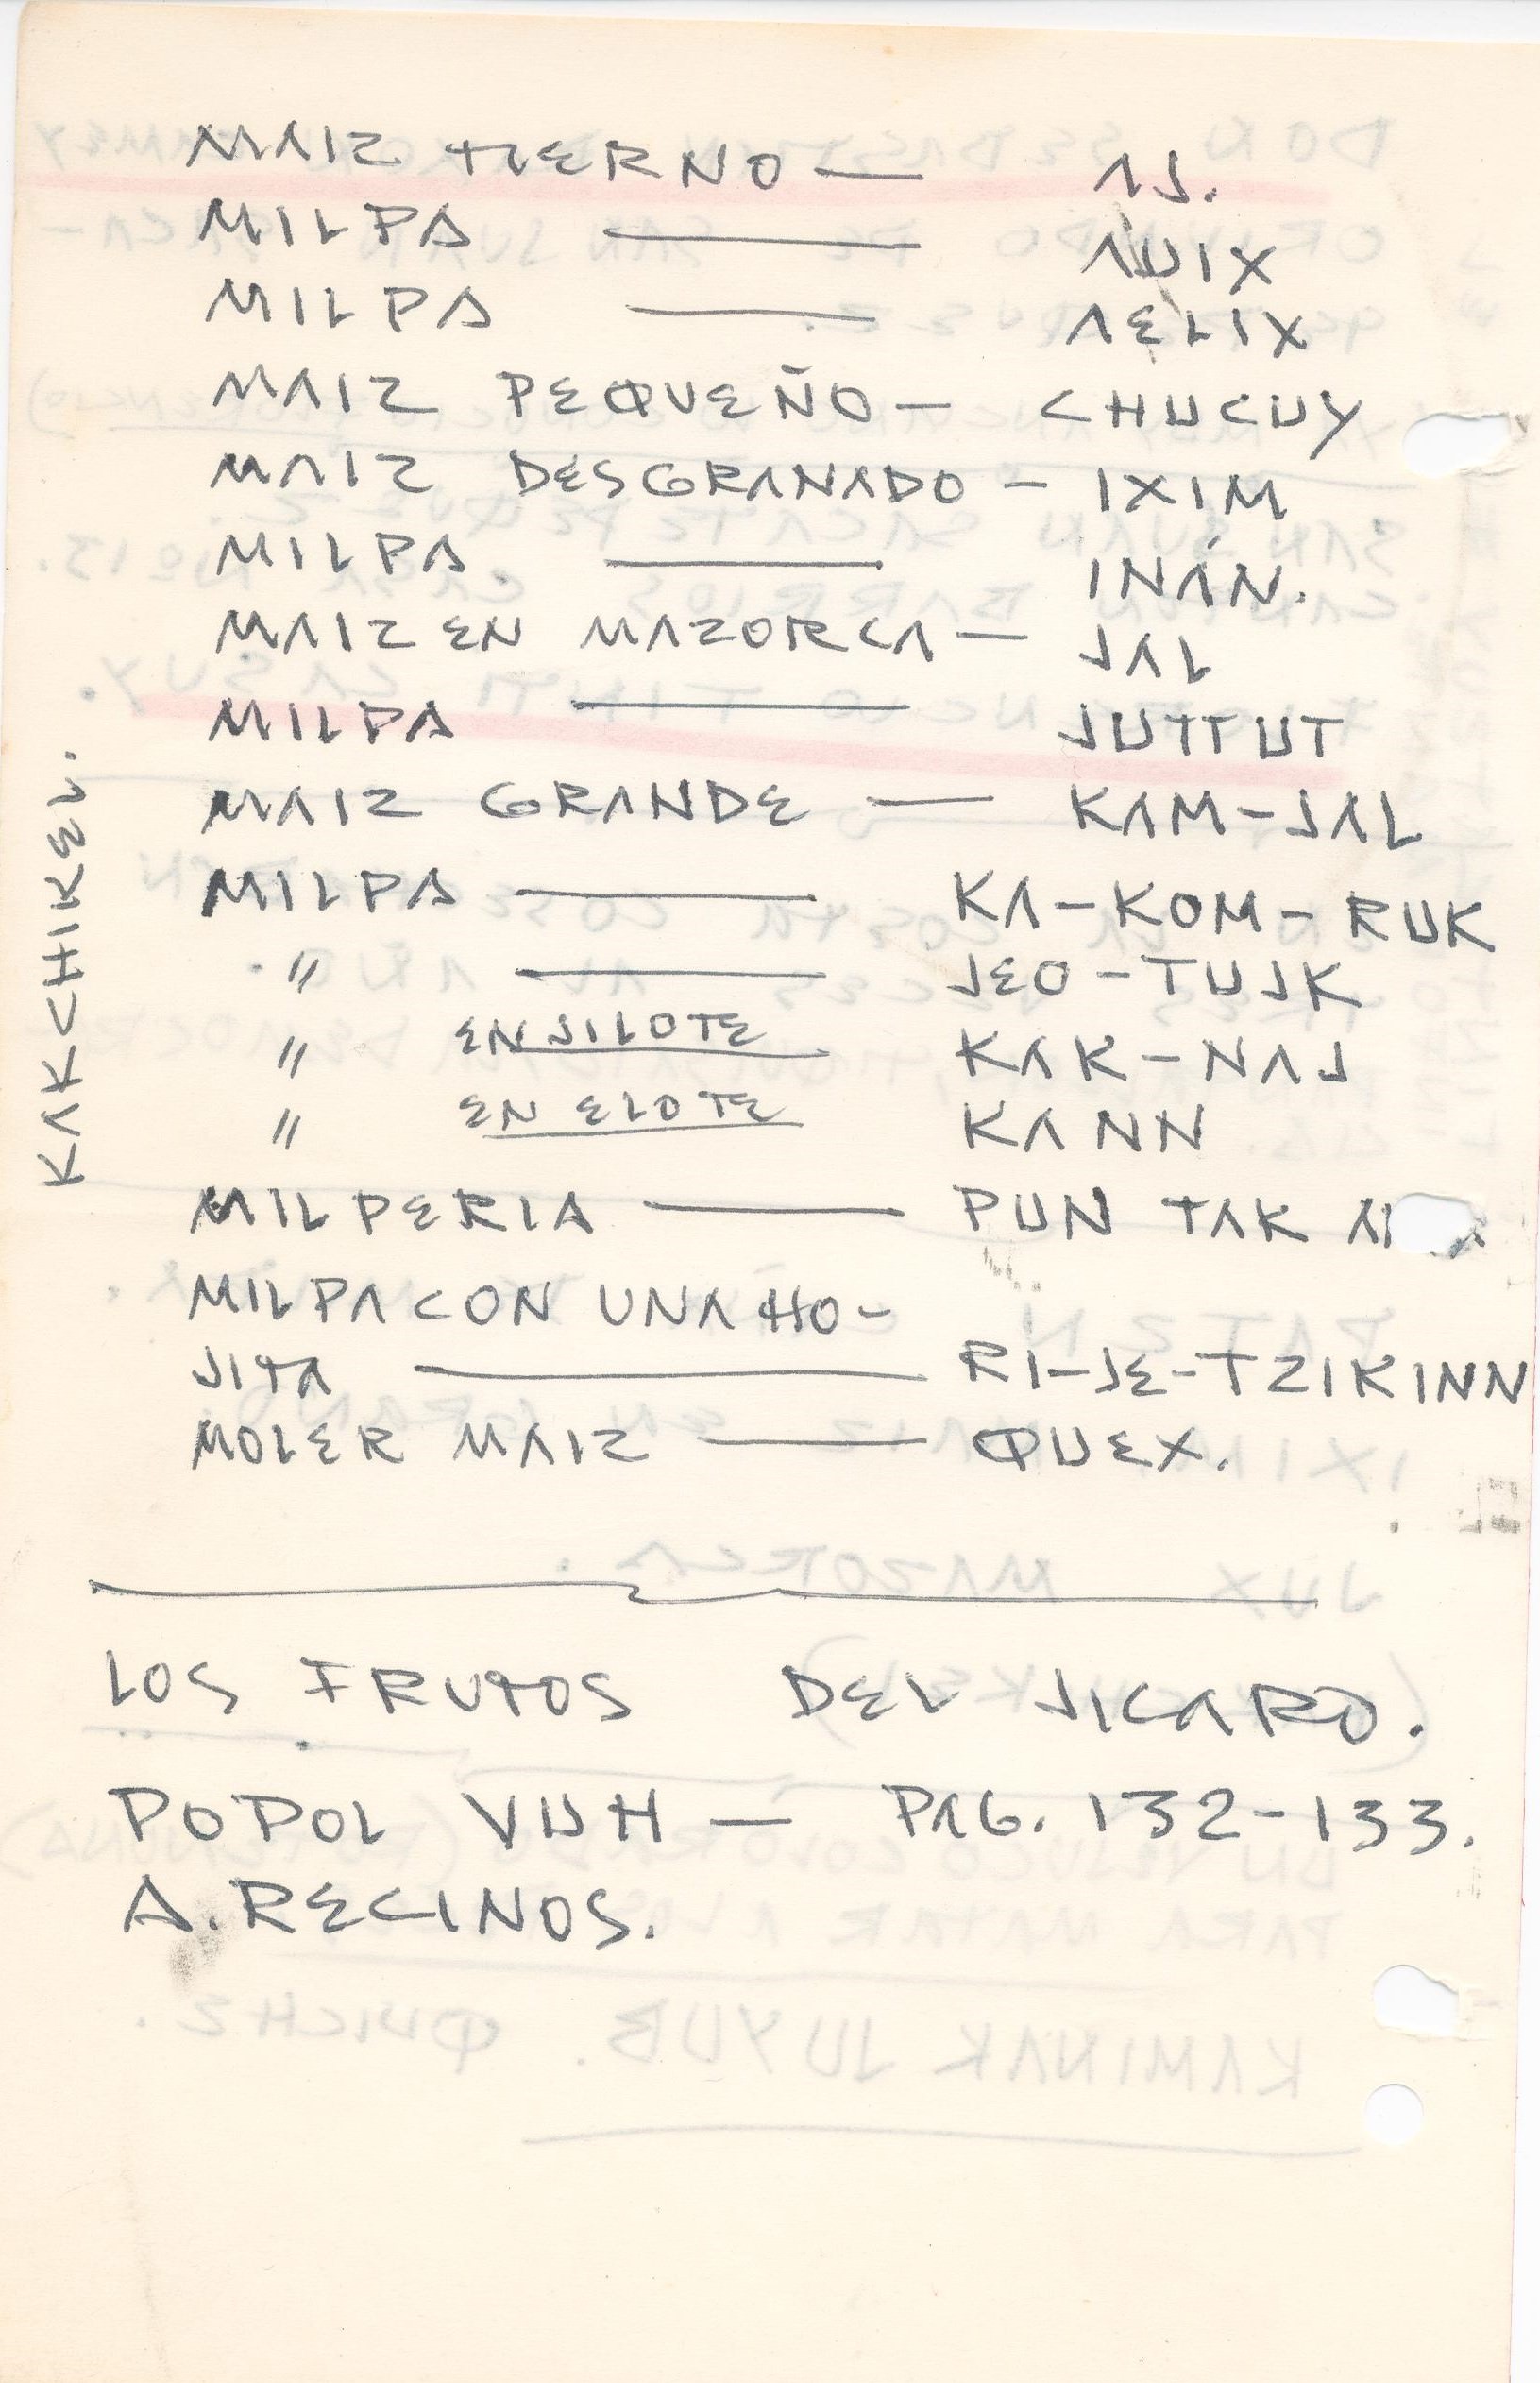 KAKCHIKEL.
MAIZ TIERNO — AJ.
MILPA — AUIX
MILPA — AELIX
MAIZ PEQUEÑO — CHUCUY
MAIZ DESGRANADO — IXIM
MILPA — INÁN.
MAIZ EN MAZORCA — JAL
MILPA — JUTTUT
MAIZ GRANDE — KAM-JAL
MILPA — KA-KOM-RUK
" — JEO-TUJK
" EN JILOTE KAK-NAJ
" EN ELOTE KANN
MILPERIA — PUN TAK
MILPA CON UNA HO-
JITA — RI-JE-TZIKINN
MOLER MAIZ — QUEX.
LOS FRUTOS DEL JICARO.
POPOL VUH — PAG. 132-133.
A. RECINOS.